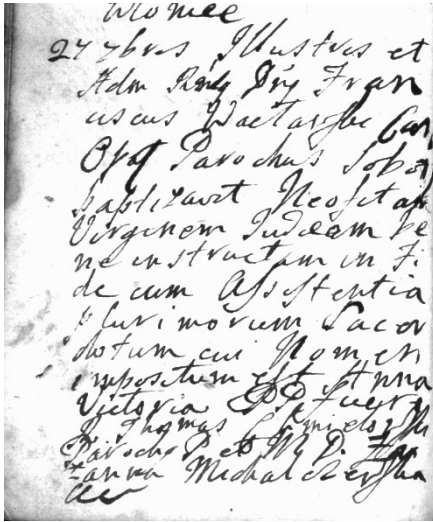 27 7bris Illustris et
Adm Rndg Dng Fran
ciscus Can
Opat Parochus Sobot
baptizavit Neofitam
Virginem Judæam be
ne instructam in Fi
de cum Assistentia
plurimorum Sacer
dotum cui Nomen
impositum est Anna
Victoria PP fuerunt
D Thomas
Parochg et D.
zanna Michalczewska